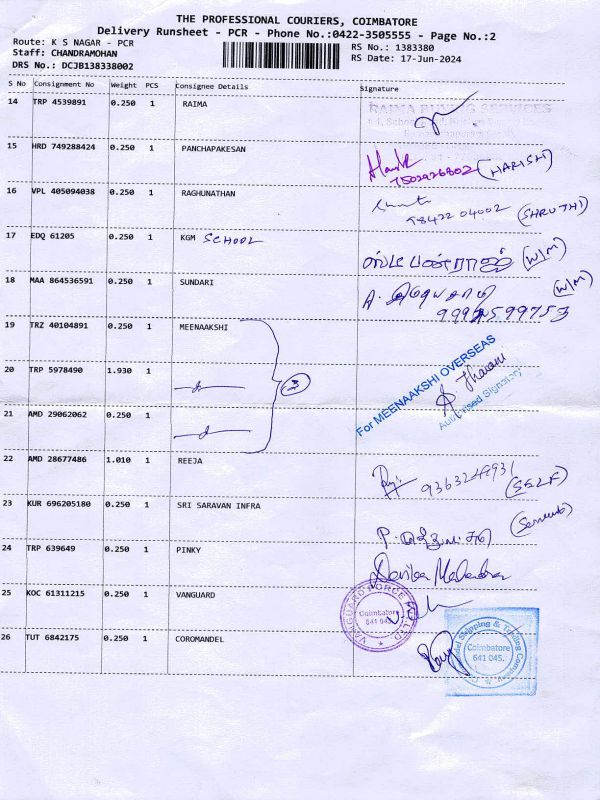 THE PROFESSIONAL COURIERS, COIMBATORE
Delivery Runsheet - PCR - Phone No.:0422-3505555 - Page No.:2
Route: K S NAGAR - PCR
Staff: CHANDRAMOHAN
DRS No.: DCJB138338002
RS No.: 1383380
RS Date: 17-Jun-2024
S No Consignment No Weight PCS Consignee Details Signature
14 TRP 4539891 0.250 1 RAIMA
15 HRD 749288424 0.250 1 PANCHAPAKESAN
(HARISH)
16 VPL 405094038 0.250 1 RAGHUNATHAN
98422 04002 (SHRUTHI)
17 EDQ 61205 0.250 1 KGM SCHOOL
(W/M)
18 MAA 864536591 0.250 1 SUNDARI
(W/M)
19 TRZ 40104891 0.250 1 MEENAAKSHI
20 TRP 5978490 1.930 1
3
For MEENAAKSHI OVERSEAS
Authorised Signatory
21 AMD 29062062 0.250 1
22 AMD 28677486 1.010 1 REEJA
(SELF)
23 KUR 696205180 0.250 1 SRI SARAVAN INFRA
24 TRP 639649 0.250 1 PINKY
25 KOC 61311215 0.250 1 VANGUARD
VANGUARD FORCE
Coimbatore
641 045.
26 TUT 6842175 0.250 1 COROMANDEL
Shipping & Trading Company
Coimbatore
641 045.